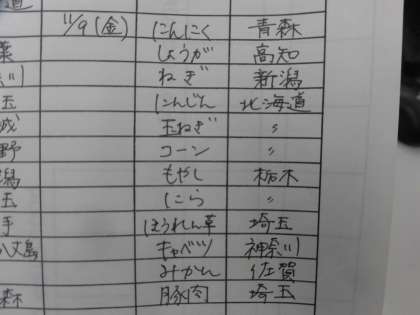 道
11/9(金) にんにく 青森
葉 しょうが 高知
川 ねぎ 新潟
玉 にんじん 北海道
城 玉ねぎ 〃
野 コーン 〃
潟 もやし 栃木
玉 にら 〃
手 ほうれん草 埼玉
八丈島 キャベツ 神奈川
みかん 佐賀
森 豚肉 埼玉